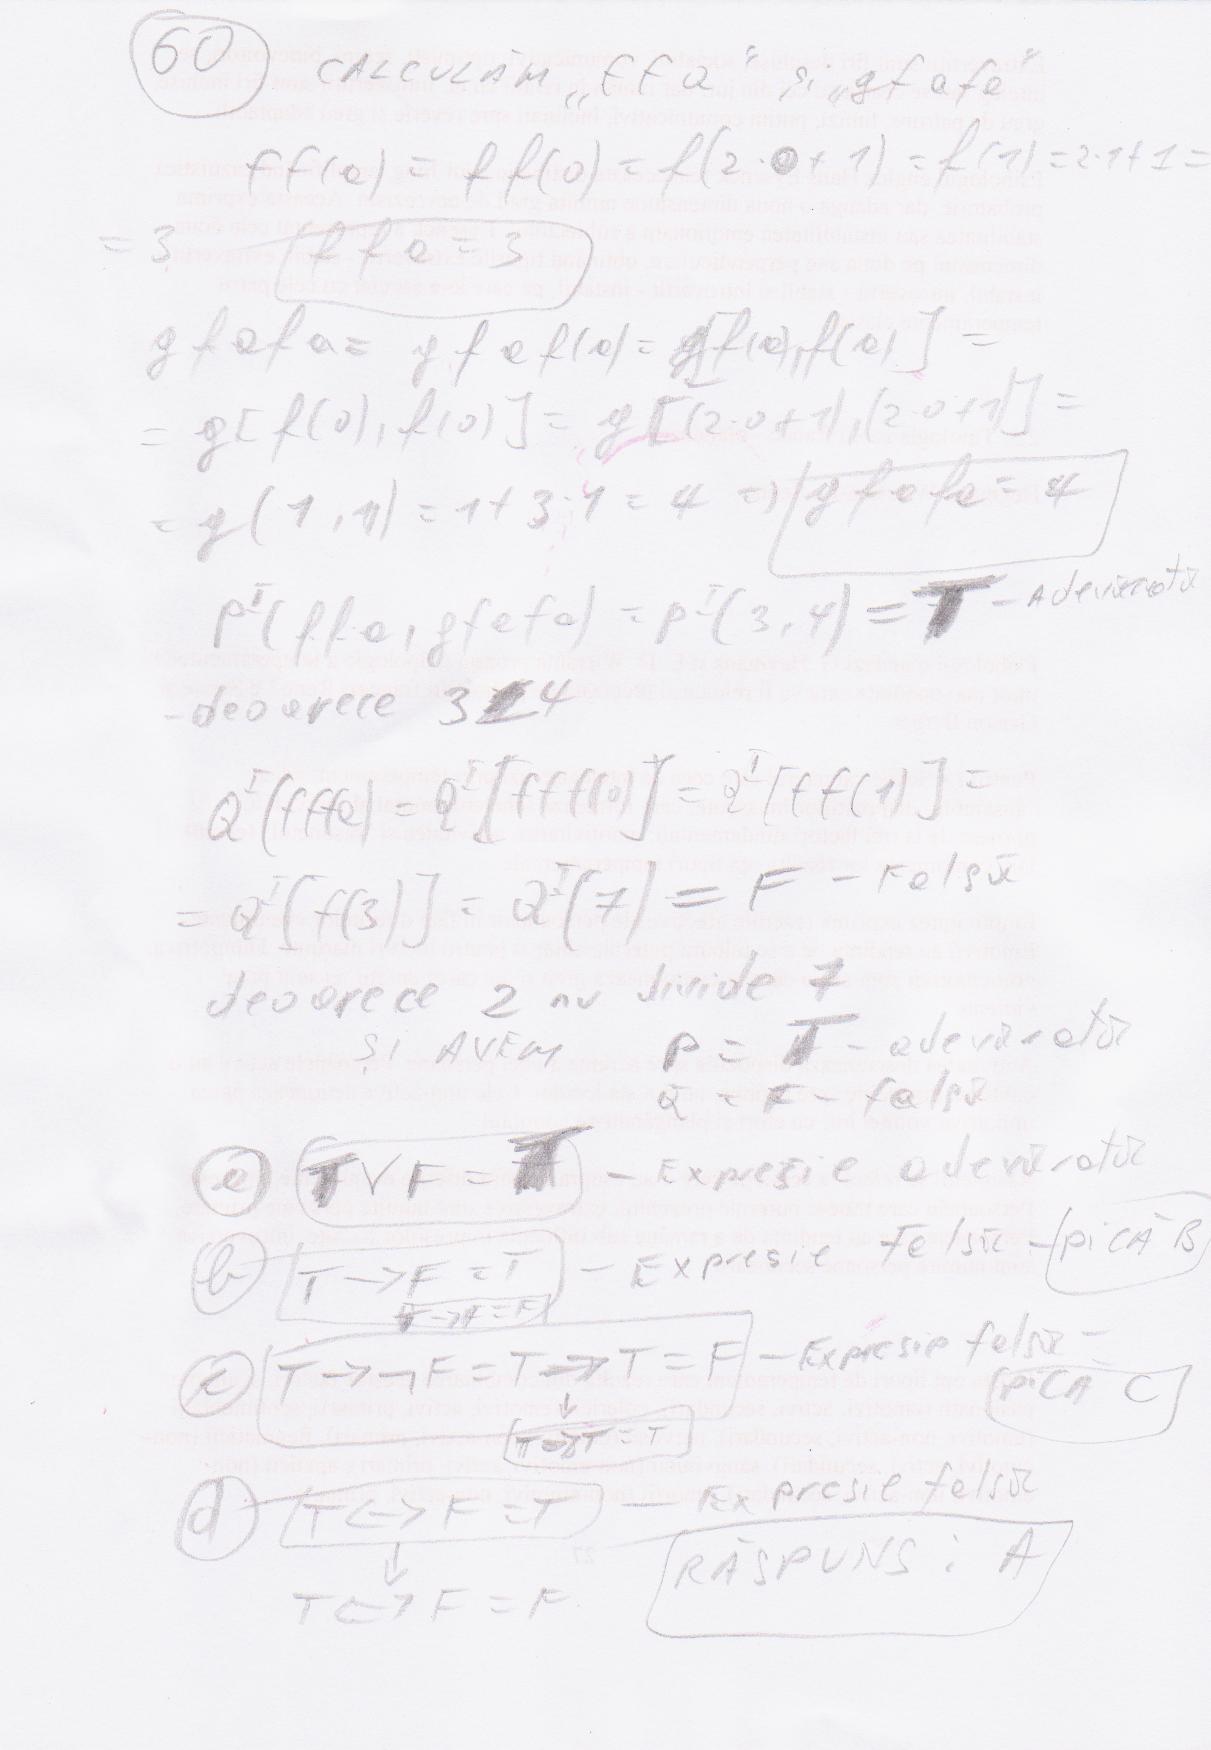 60 CALCULĂM „ffa" și „gfafa"
ff(a) = ff(0) = f(2·0+1) = f(1) = 2·1+1 =
= 3 ffa = 3
gfafa = gfaf(a) = g[f(a), f(a)] =
= g[f(0), f(0)] = g[(2·0+1), (2·0+1)] =
= g(1, 1) = 1+3·1 = 4 => gfafa = 4
P^I(ffa, gfafa) = P^I(3, 4) = T – Adevărată
– deoarece 3<4
Q^I(fffa) = Q^I[fff(0)] = Q^I[ff(1)] =
= Q^I[f(3)] = Q^I(7) = F – Falsă
deoarece 2 nu divide 7
ȘI AVEM P = T – adevărată
Q = F – falsă
a T∨F = T – Expresie adevărată
b T→F = T – Expresie falsă – PICĂ B
T→F = F
c T→¬F = T→T = F – Expresie falsă =
PICĂ C
↓
T→T = T
d T<->F = T – Expresie falsă
↓
RĂSPUNS: A
T<->F = F